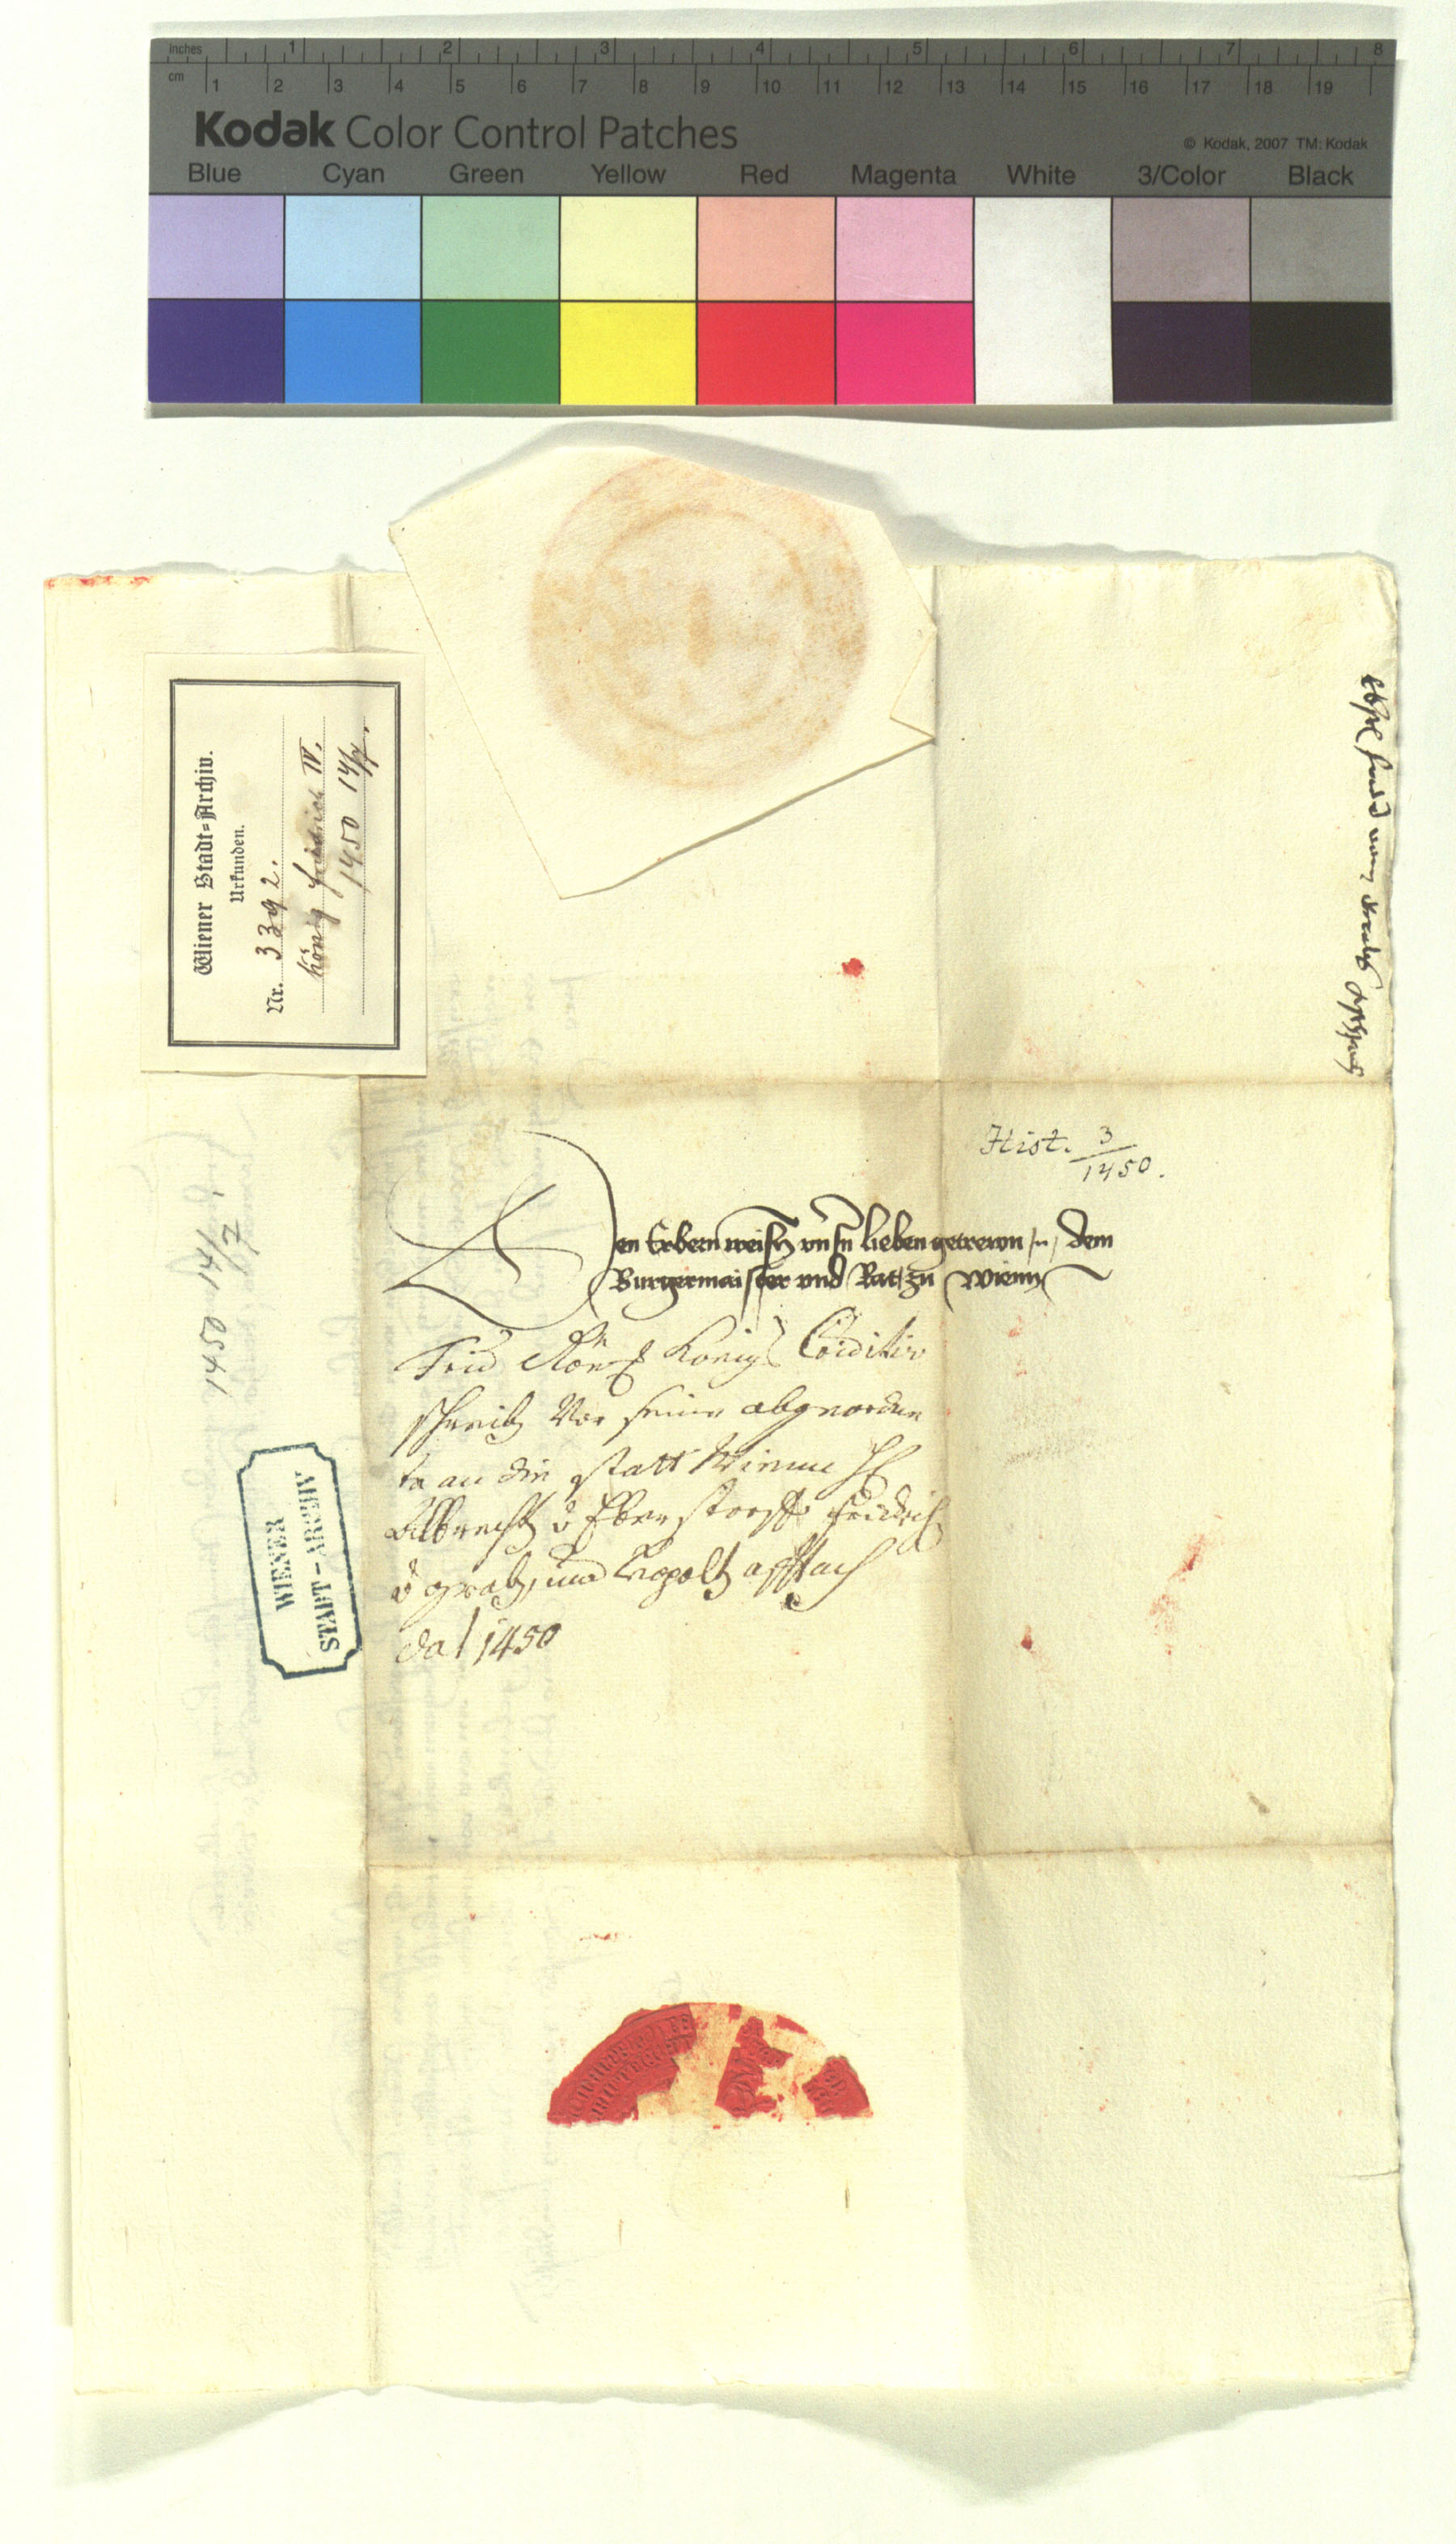 inches 1 2 3 4 5 6 7 8
cm 1 2 3 4 5 6 7 8 9 10 11 12 13 14 15 16 17 18 19
Kodak Color Control Patches
© Kodak, 2007 TM: Kodak
Blue Cyan Green Yellow Red Magenta White 3/Color Black
Wiener Stadt-Archiv.
Urkunden.
Nr. 3392.
König Friedrich IV.
1450 14/7.
Hist. 3/1450.
Den Erbern weisen unsern lieben getrewn dem
Burgermaister und Rat zu Wienn
Frid Röm Konigs Creditiv
schreib vor seine abgeordne
te an die statt Wienn
Albrecht v Eberstorff Fridrich
v grab, und
dat 1450
1450 14/7
WIENER
STADT-ARCHIV